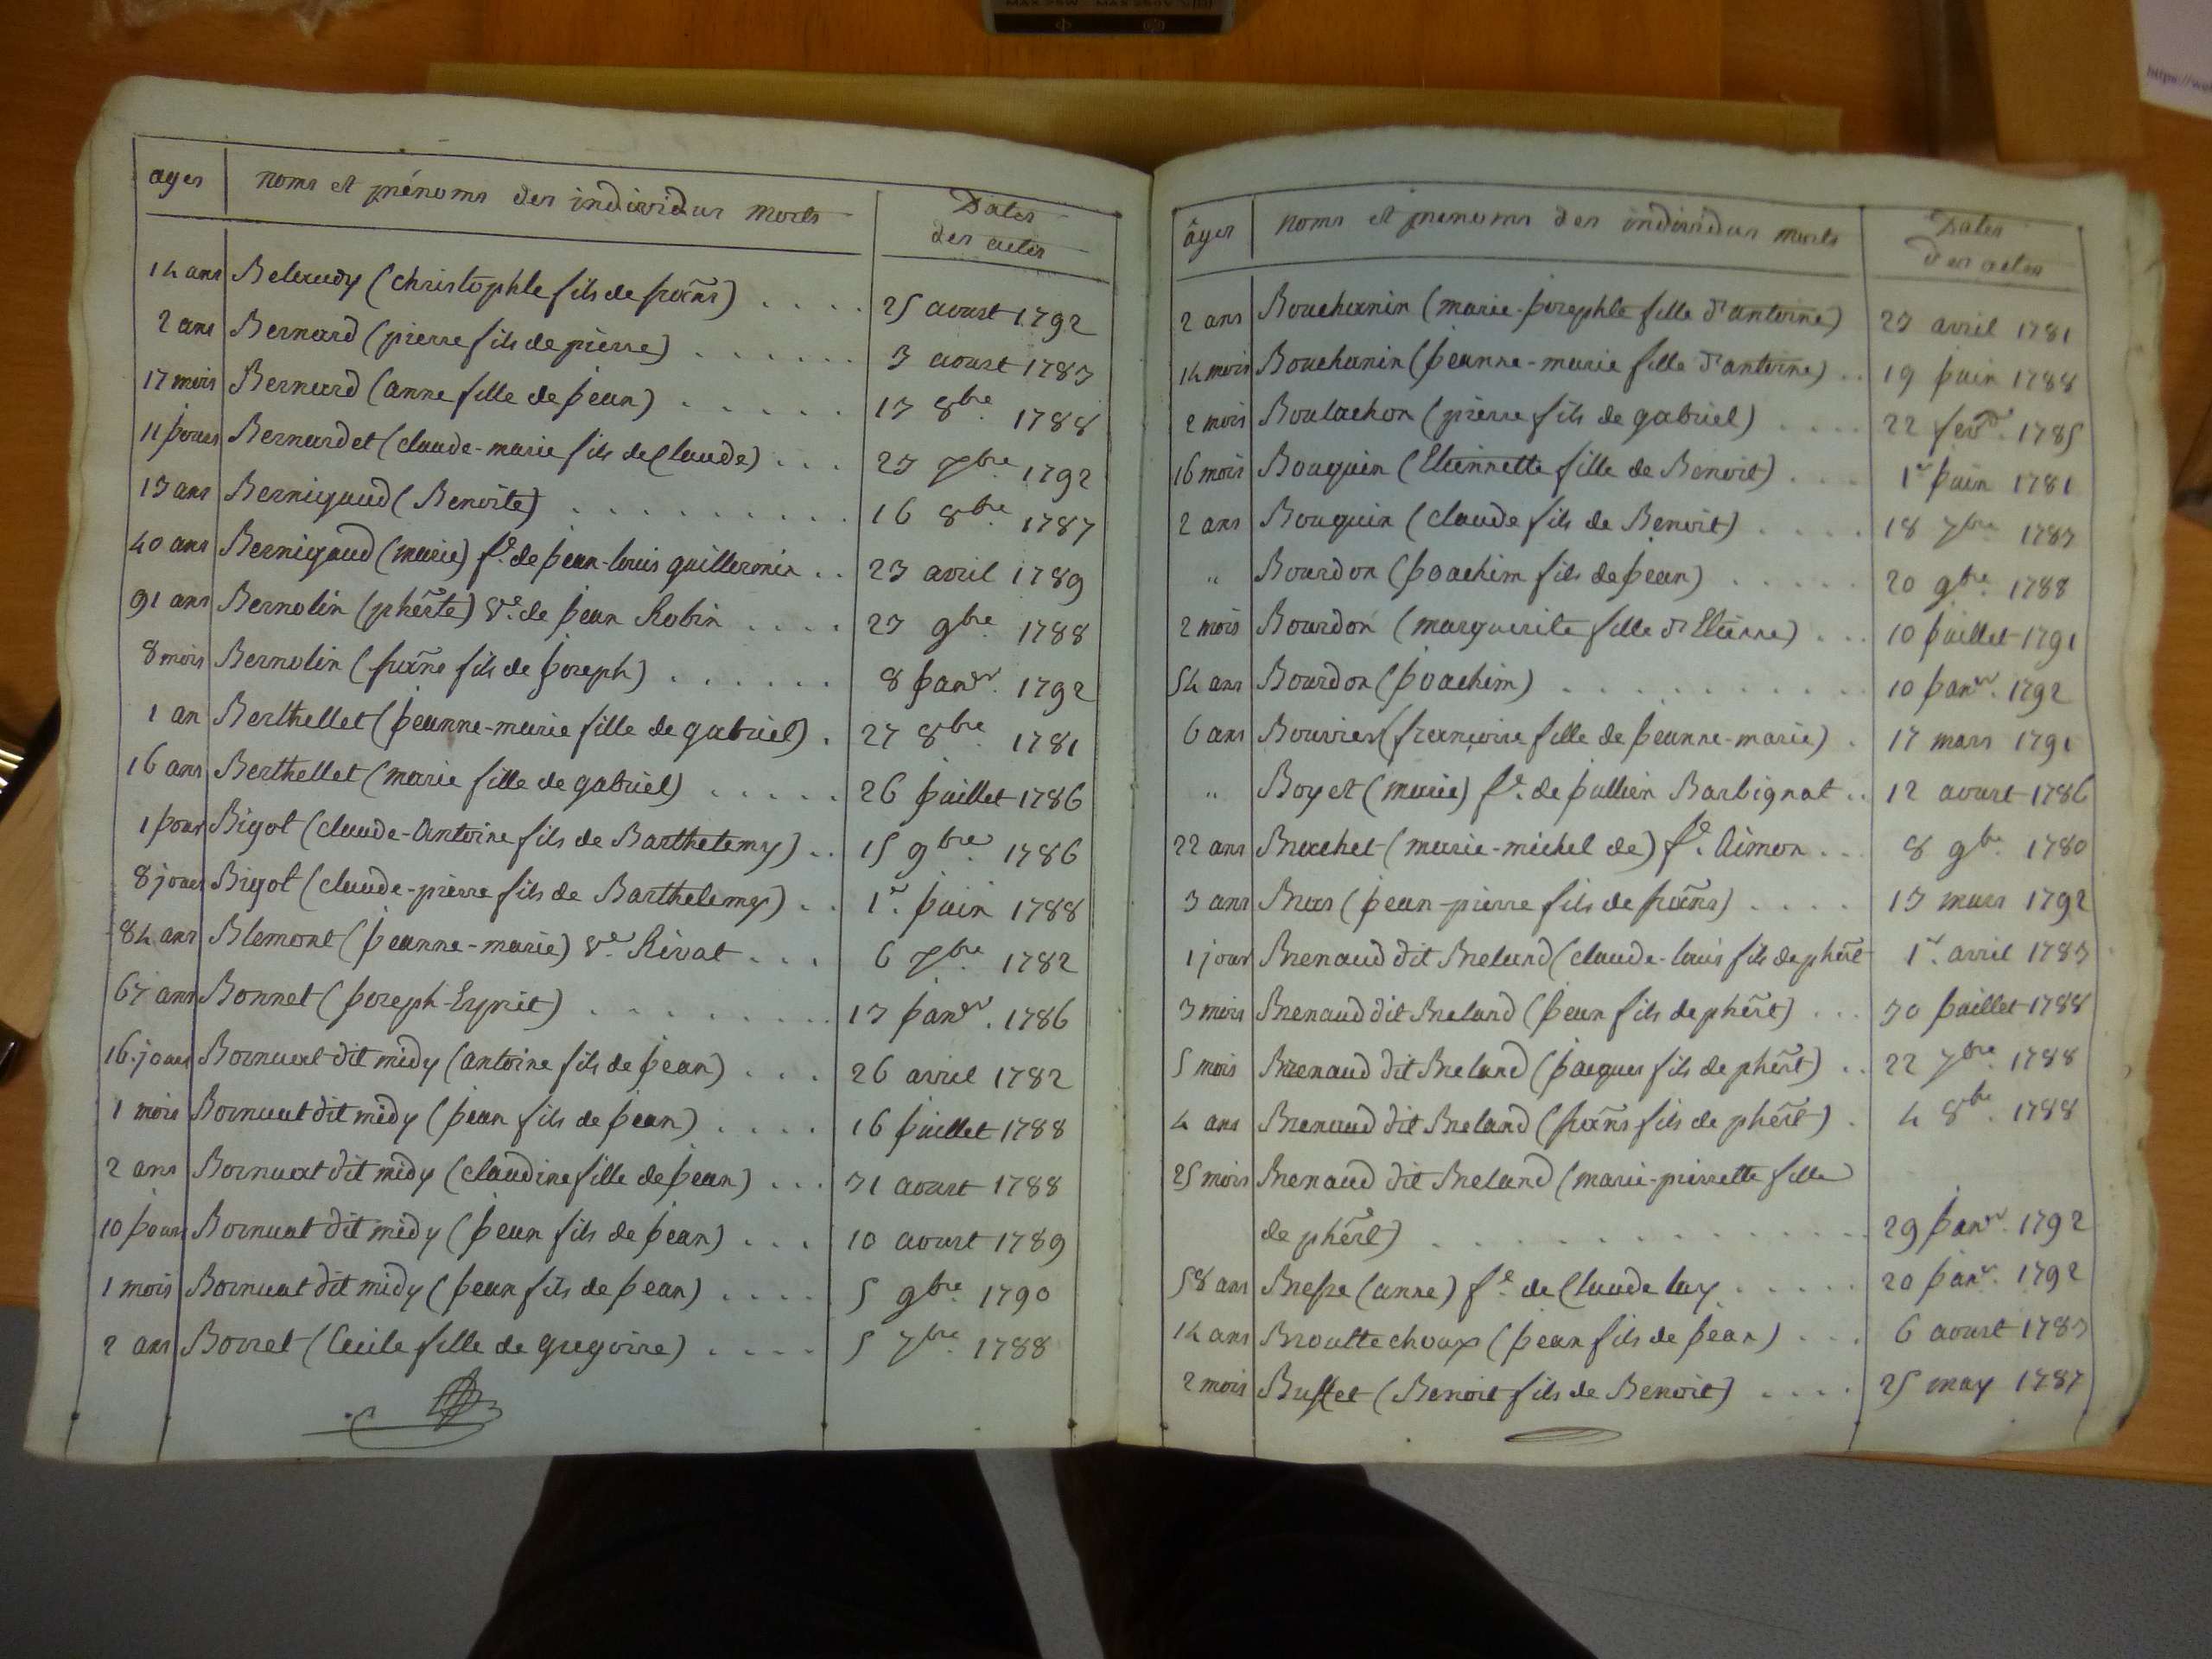 ages noms et prénoms des individus morts Dates
des actes
14 ans Beleudy (christophle fils de frans) . . . . 25 aoust 1792
2 ans Bernard (pierre fils de pierre) . . . . . . 3 aoust 1783
17 mois Bernard (anne fille de jean) . . . . . 13 8bre 1788
11 jours Bernardet (claude-marie fils de Claude) . . . 23 7bre 1792
13 ans Bernigaud (Benoite) . . . . . . . . . . 16 8bre 1787
40 ans Bernigaud (marie) fe. de jean-louis guilleronin . . 23 avril 1789
91 ans Bernolin (pherte) ve. de jean Robin . . . . 23 9bre 1788
8 mois Bernolin (frans fils de joseph) . . . . . . 8 janvr. 1792
1 an Berthellet (jeanne-marie fille de gabriel) . 27 8bre 1781
16 ans Berthellet (marie fille de gabriel) . . . . . 26 juillet 1786
1 jour Bigot (claude-Antoine fils de Barthelemy) . . 15 9bre 1786
8 jours Bigot (claude-pierre fils de Barthelemy) . . 1r. juin 1788
84 ans Blemont (jeanne-marie) ve. Rivat . . . 6 7bre 1782
67 ans Bonnet (joseph-Esprit) . . . . . . . . . 13 janvr. 1786
16 jours Bornuat dit midy (antoine fils de jean) . . . 26 avril 1782
1 mois Bornuat dit midy (jean fils de jean) . . . . 16 juillet 1788
2 ans Bornuat dit midy (claudine fille de jean) . . . 31 aoust 1788
10 jours Bornuat dit midy (jean fils de jean) . . . 10 aoust 1789
1 mois Bornuat dit midy (jean fils de jean) . . . . 5 9bre 1790
2 ans Borret (Cecile fille de gregoire) . . . . 5 7bre 1788
âges noms et prenoms des individus morts Dates
des actes
2 ans Bouchanin (marie-josephle fille d'antoine) 23 avril 1781
14 mois Bouchanin (jeanne-marie fille d'antoine) . . 19 juin 1788
2 mois Boulachon (pierre fils de gabriel) . . . . 22 fevr. 1785
16 mois Bouquin (Etiennette fille de Benoit) . . . 1r juin 1781
2 ans Bouquin (claude fils de Benoit) . . . . 18 7bre 1783
" Bourdon (joachim fils de jean) . . . . . 20 9bre. 1788
2 mois Bourdon (marguerite fille d'Etienne) . . . 10 juillet 1791
54 ans Bourdon (joachim) . . . . . . . . . . . 10 janvr. 1792
6 ans Bouvier (françoise fille de jeanne-marie) . 17 mars 1791
" Boyet (marie) fe. de jullien Barbignat . . 12 aoust 1786
22 ans Brachet (marie-michel de) fe. Aimon . . . 8 9bre. 1780
3 ans Bras (jean-pierre fils de frans) . . . . 13 mars 1792
1 jour Brenaud dit Breland (claude-louis fils de phert 1r. avril 1783
3 mois Brenaud dit Breland (jean fils de phert) . . . 30 juillet 1788
5 mois Brenaud dit Breland (jacques fils de phert) . . 22 7bre 1788
4 ans Brenaud dit Breland (frans fils de phert) . 4 8bre. 1788
25 mois Brenaud dit Breland (marie-pierrette fille
de phert) . . . . . . . . . . . . . . 29 janvr. 1792
58 ans Bresse (anne) fe. de Claude lay . . . . . 20 janr. 1792
14 ans Brouttechoux (jean fils de jean) . . . 6 aoust 1783
2 mois Buffet (Benoit fils de Benoit) . . . . 25 may 1787